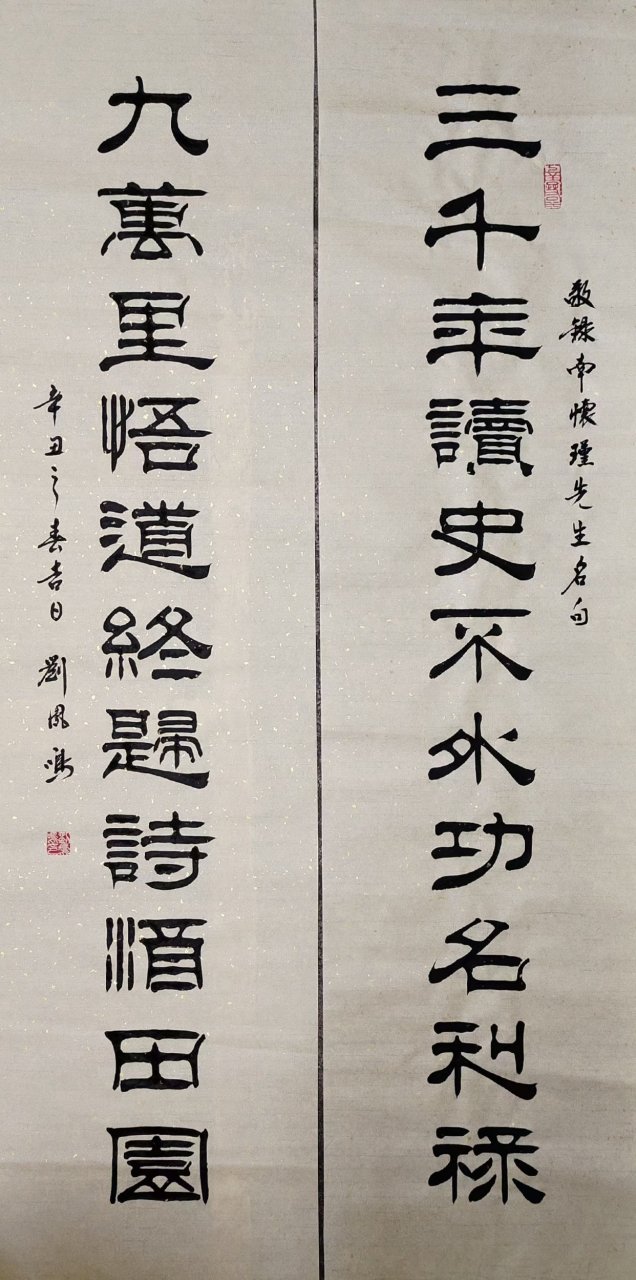 三千年讀史不外功名利祿
敬錄南懷瑾先生名句
九萬里悟道終歸詩酒田園
辛丑之春吉日 劉鳳鳴